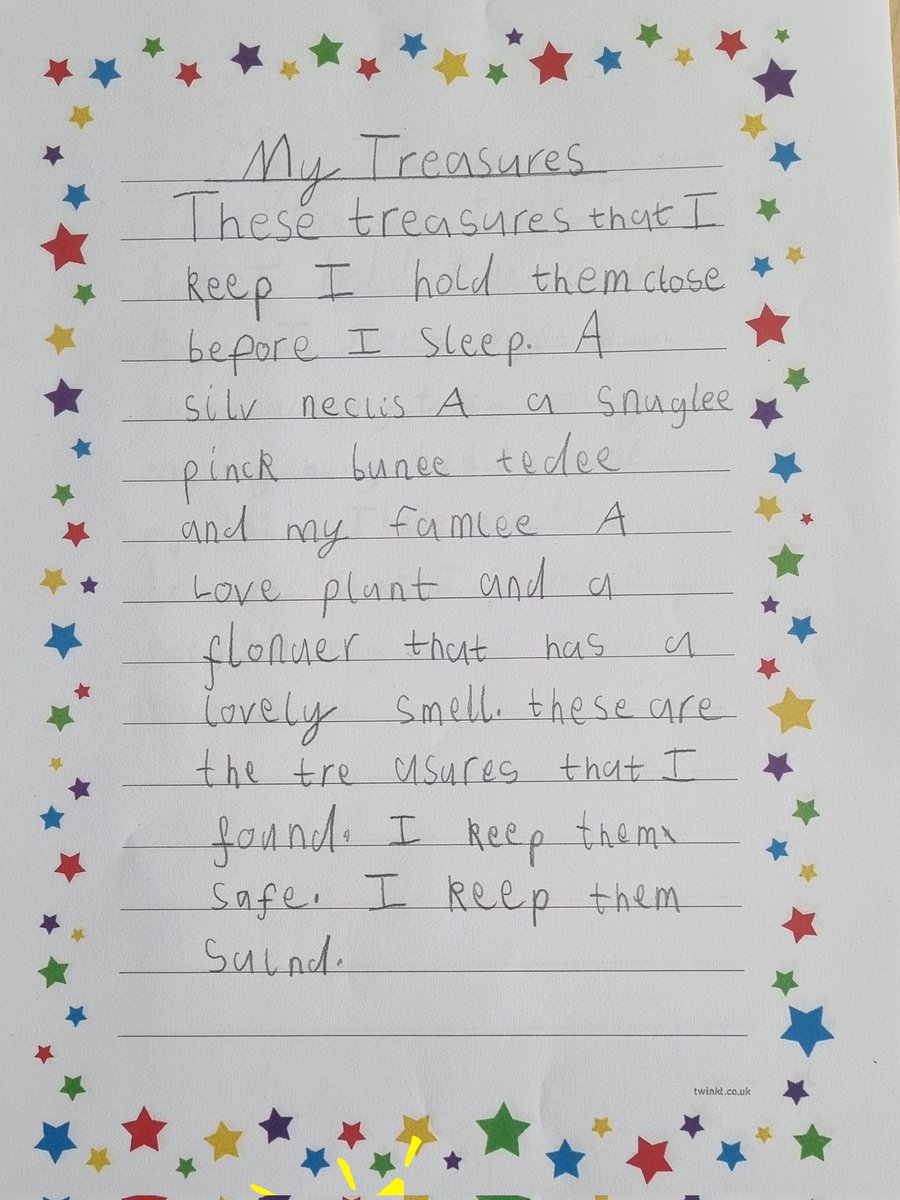 My Treasures
These treasures that I
keep I hold them close
bepore I sleep. A
silv neclis A a snuglee
pinck bunee tedee
and my famlee A
Love plant and a
flonuer that has a
lovely smell. these are
the tre asures that I
found. I keep them
safe. I keep them
saind.
twinkl.co.uk